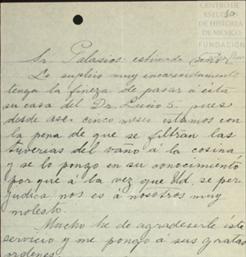 CENTRO DE
ESTUDIOS
DE HISTORIA
DE MEXICO
FUNDACION
Sr. Palasios estimado señor
Lo suplico muy encarecidamente
tenga la fineza de pasar á esta
su casa del Dr. Lucio 5. pues
desde ase cinco meses estamos con
la pena de que se filtran las
tuverias del vaño á la cosina
y se lo pongo en su conocimiento
por que á la vez que Ud. se per
judica nos es á nosotros muy
molesto.
Mucho he de agradeserle éste
servicio y me pongo a sus gratas
ordenes.